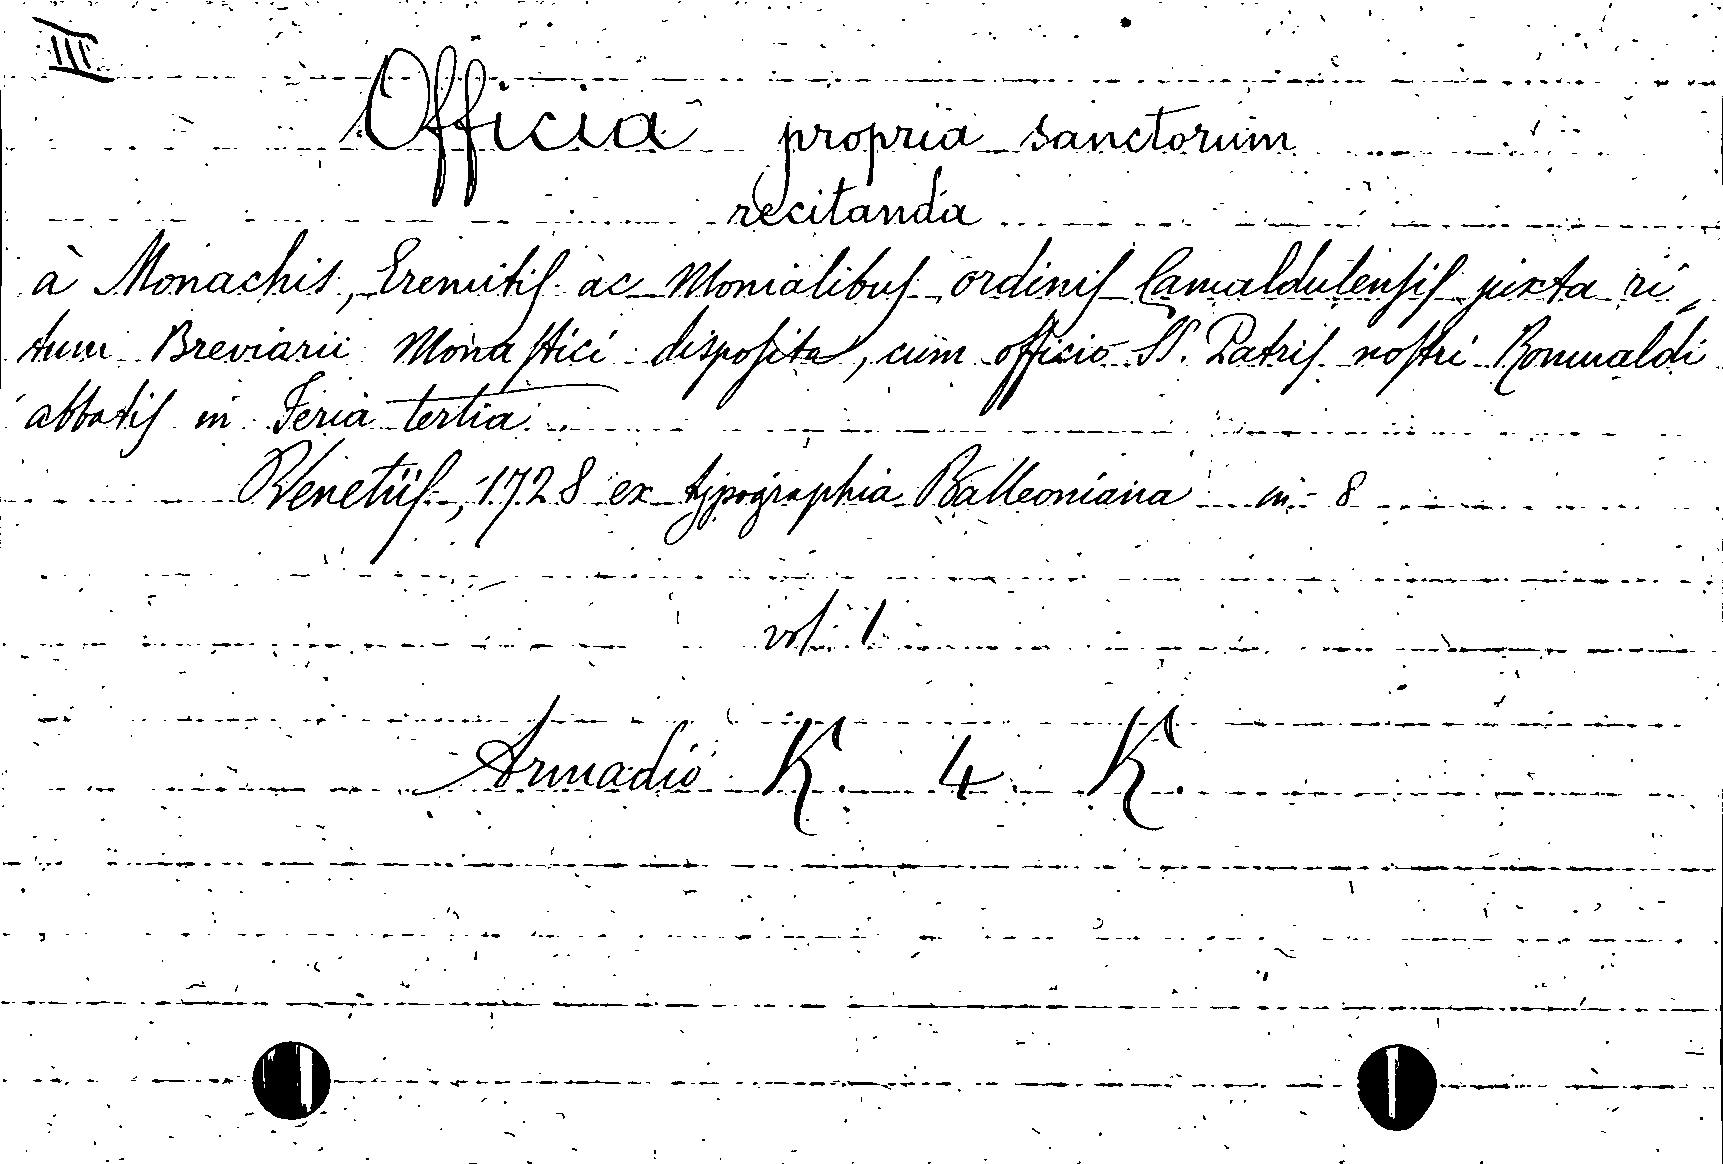 III
Officia propria sanctorum
recitanda
à Monachis, Eremitis ac Monialibus ordinis Camaldulensis juxta ri-
tum Breviarii Monastici disposita, cum officio SS. Patris nostri Romualdi
abbatis in Feria tertia
Venetiis, 1728 ex typographia Balleoniana in-8
vol. 1
Armadio K. 4 K.